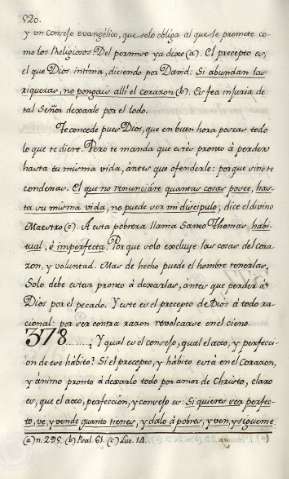 520.
y un consejo evangélico, que solo obliga al que le promete co-
mo los Religiosos. Del permiso ya dixe (a). El precepto es,
el que Dios intima, diciendo por David: Si abundan las
riquezas, no pongais alli el corazon (b). Es fea injuria de
tal Señor dexarle por el lodo.
Te concede pues Dios, que en buen hora poseas todo
lo que te diere. Pero te manda que estés pronto á perder
hasta tu misma vida, ántes que ofenderle: porque sino te
condenas. El que no renunciáre quantas cosas posee, has-
ta su misma vida, no puede ser mi discipulo, dice el divino
Maestro (c). A esta pobreza llama Santo Thomas, habi-
tual, é imperfecta. Porque solo excluye las cosas del cora-
zon, y voluntad. Mas de hecho puede el hombre tenerlas.
Solo debe estar pronto á dexarlas, antes que perder á
Dios por el pecado. Y este es el precepto de Dios á todo ra-
cional: por ser contra razon revolcarse en el cieno.
378. Y qual es el consejo, qual el acto, y perfecci-
on de ese hábito? Si el precepto, y hábito está en el Corazon,
y ánimo pronto á dexarlo todo por amor de Christo, claro
es, que el acto, perfección, y consejo es: Si quieres ser perfec-
to, ve, y vende quanto tienes, y dálo á pobres, y ven, y sigueme
(a) n. 295. (b) Psal. 61. (c) Luc. 14.